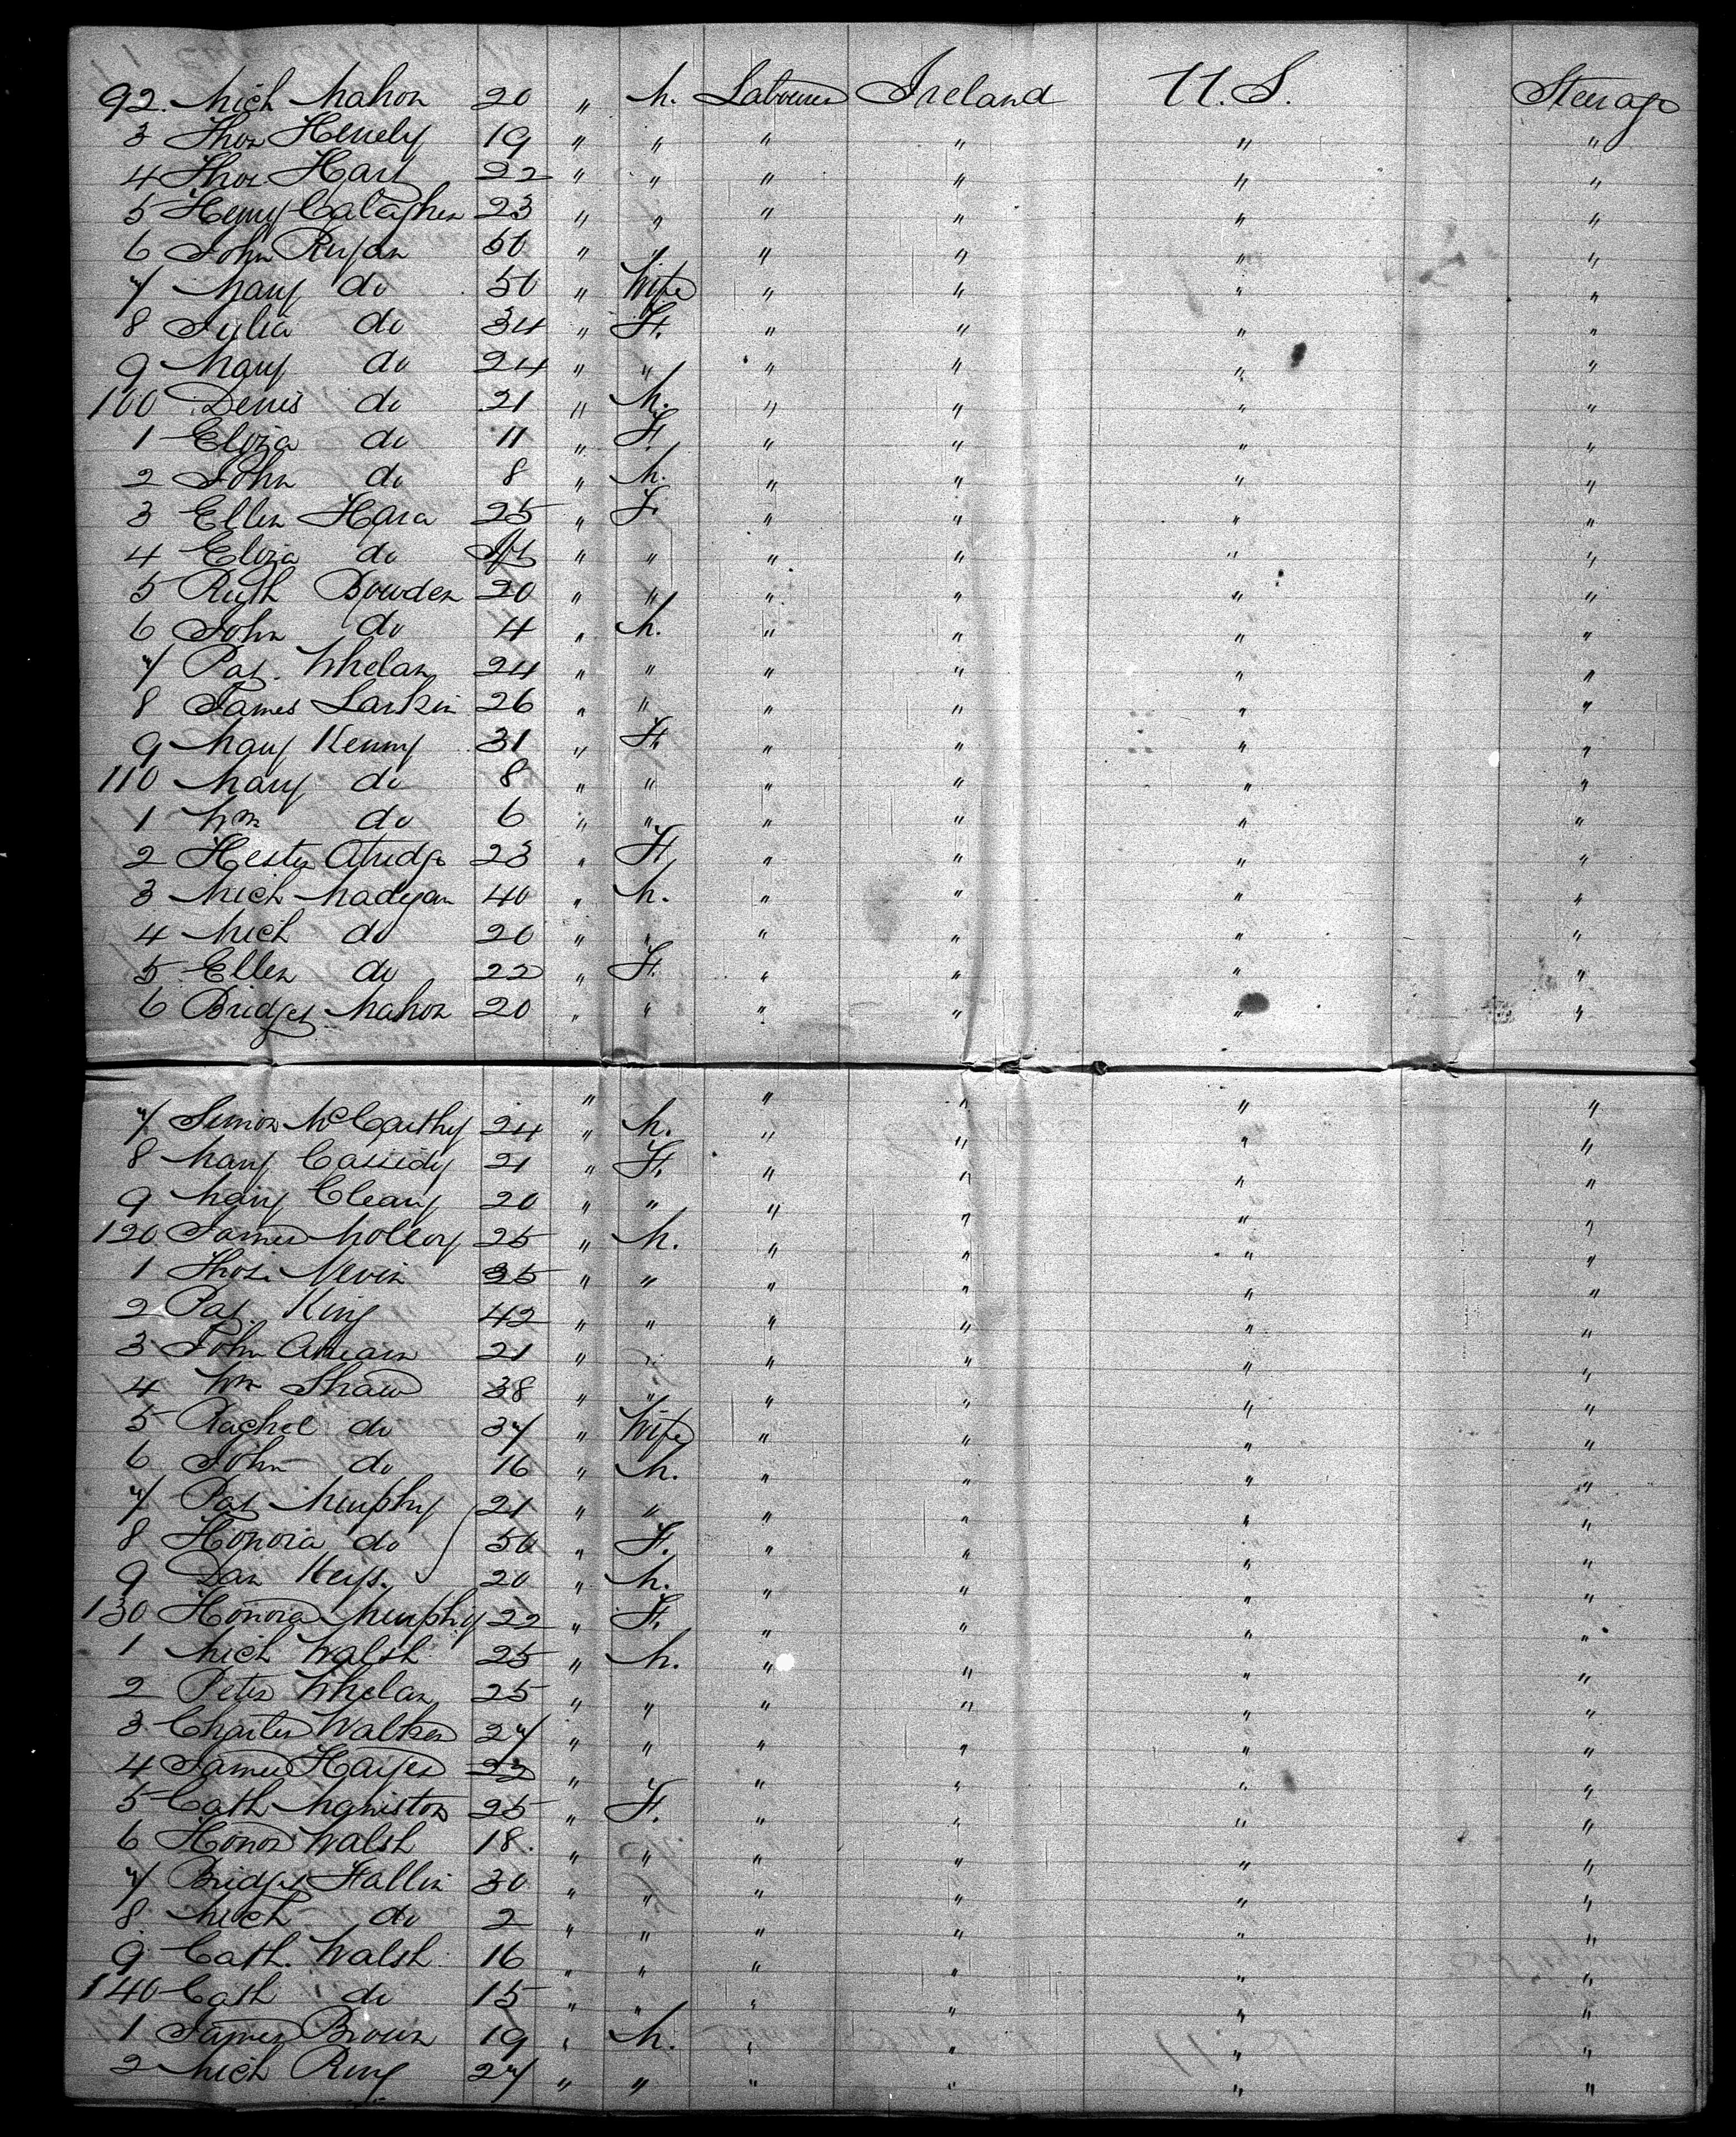 92. Mich Mahon 20 " M. Labourer Ireland U.S. Steerage
3 Thos Henely 19 " " " " " "
4 Thos Hart 22 " " " " " "
5 Henry Calagher 23 " " " " " "
6 John Ryan 50 " " " " " "
7 Mary do 50 " Wife " " " "
8 Julia do 34 " F. " " " "
9 Mary do 24 " " " " " "
100 Denis do 21 " M. " " " "
1 Eliza do 11 " F. " " " "
2 John do 8 " M. " " " "
3 Ellen Hara 25 " F. " " " "
4 Eliza do " " " " " "
5 Ruth Dowden 20 " " " " " "
6 John do 4 " M. " " " "
7 Pat. Whelan 24 " " " " " "
8 James Larkin 26 " " " " " "
9 Mary Kenny 31 " F. " " " "
110 Mary do 8 " " " " " "
1 Wm do 6 " " " " " "
2 Hester 23 " F. " " " "
3 Mich Madigan 40 " M. " " " "
4 Mich do 20 " " " " " "
5 Ellen do 22 " F. " " " "
6 Bridget Mahon 20 " " " " " "
" " " " "
7 Simon McCarthy 24 " M. " " " "
8 Mary Cassidy 21 " F. " " " "
9 Mary Cleary 20 " " " " " "
120 James Molloy 25 " M. " " " "
1 Thos. Nevin 35 " " " " " "
2 Pat. King 42 " " " " " "
3 John 21 " " " " " "
4 Wm Shaw 38 " " " " " "
5 Rachel do 37 " Wife " " " "
6 John do 16 " M. " " " "
7 Pat Murphy 21 " " " " " "
8 Honora do 50 " F. " " " "
9 Dan Keys. 20 " M. " " " "
130 Honora Murphy 22 " F. " " " "
1 Mich Walsh 25 " M. " " " "
2 Peter Whelan 25 " " " " " "
3 Charles Walker 27 " " " " " "
4 James Hayes 22 " " " " " "
5 Cath 25 " F. " " " "
6 Honor Walsh 18. " " " " " "
7 Bridget Fallin 30 " " " " " "
8 Mich do 2 " " " " " "
9 Cath. Walsh 16 " " " " " "
140 Cath do 15 " " " " " "
1 James Brown 19 " M. " " " "
2 Mich Ring 27 " " " " " "